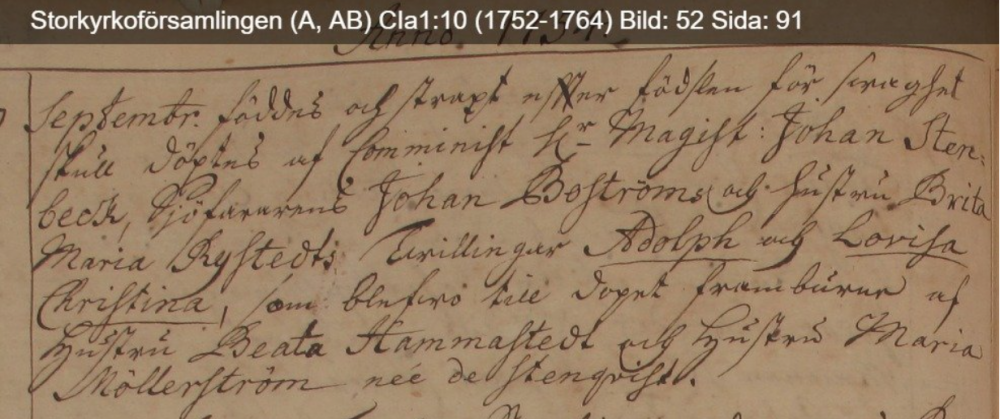 Storkyrkoförsamlingen (A, AB) CIa1:10 (1752-1764) Bild: 52 Sida: 91
Anno 1754
Septembr. föddes och strapt efter födslen för swaghet
skull döptes af Comminist Hr Magist: Johan Sten-
beck, Sjöfararens Johan Boströms och hustru Brita
Maria Rystedts Twillingar Adolph och Lovisa
Christina, som blefwo till dopet framburne af
Hustru Beata Hammastedt och Hustru Maria
Möllerström neé de Stenqvist.